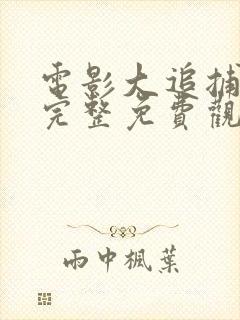 電影大追捕
完整免費觀
雨中楓葉